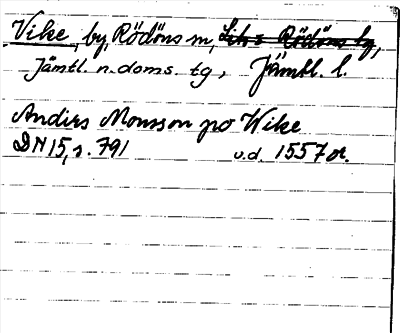 Vike, by, Rödöns sn, Lits o Rödöns tg,
Jämtl. n. doms. tg, Jämtl. l.
Anders Monsson po Wike
DN 15, s. 791 u.d. 1557 or.